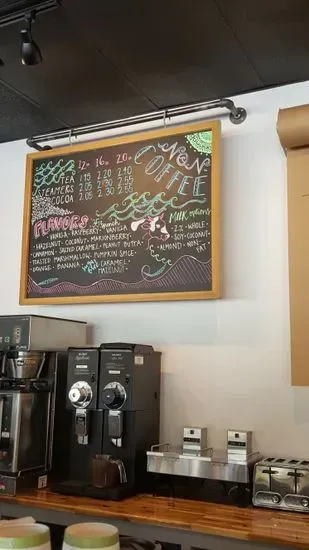 NON COFFEE
12oz 16oz 20oz
TEA 1.95 2.20 2.40
STEAMERS 2.05 2.30 2.65
COCOA 2.05 2.30 2.65
FLAVORS
VANILLA · RASPBERRY · VANILLA
HAZELNUT · COCONUT · MARIONBERRY ·
CINNAMON · SALTED CARAMEL · PEANUT BUTTER
TOASTED MARSHMALLOW · PUMPKIN SPICE ·
ORANGE · BANANA · CARAMEL ·
HAZELNUT
MILK OPTIONS
2% · WHOLE ·
SOY · COCONUT ·
ALMOND · NON
FAT